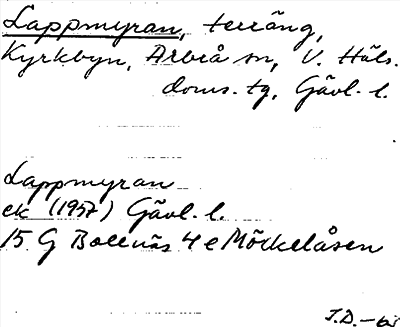 Lappmyran, terräng,
Kyrkbyn, Arbrå sn, V. Häls.
doms. tg, Gävl. l.
Lappmyran
ek (1957) Gävl. l.
15 G Bollnäs 4 e Mörkelåsen
J.D. -63